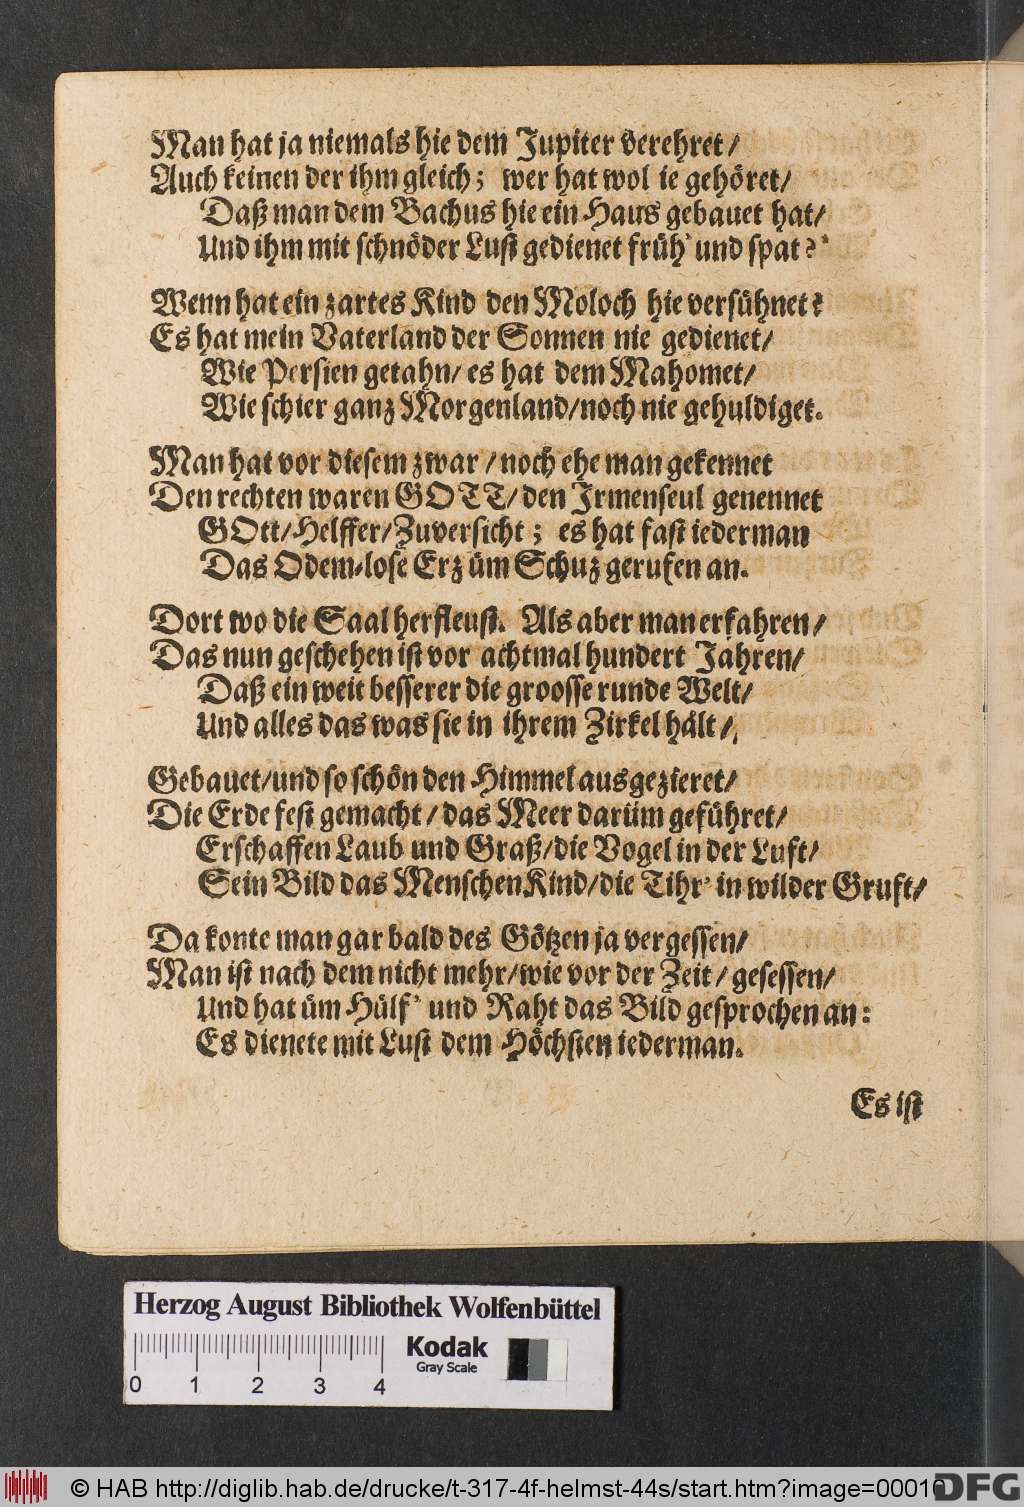 Man hat ja niemals hie dem Jupiter verehret/
Auch keinen der ihm gleich; wer hat wol ie gehöret/
Daß man dem Bachus hie ein Haus gebauet hat/
Und ihm mit schnöder Lust gedienet früh' und spat?
Wenn hat ein zartes Kind den Moloch hie versühnet?
Es hat mein Vaterland der Sonnen nie gedienet/
Wie Persien getahn/ es hat dem Mahomet/
Wie schier ganz Morgenland/ noch nie gehuldiget.
Man hat vor diesem zwar/ noch ehe man gekennet
Den rechten waren GOTT/ den Irmenseul genennet
GOtt/ Helffer/ Zuversicht; es hat fast iederman
Das Odem-lose Erz üm Schuz gerufen an.
Dort wo die Saal herfleust. Als aber man erfahren/
Das nun geschehen ist vor achtmal hundert Jahren/
Daß ein weit besserer die groosse runde Welt/
Und alles das was sie in ihrem Zirkel hält/
Gebauet/ und so schön den Himmel ausgezieret/
Die Erde fest gemacht/ das Meer darüm geführet/
Erschaffen Laub und Graß/ die Vogel in der Luft/
Sein Bild das MenschenKind/ die Tihr' in wilder Gruft/
Da konte man gar bald des Götzen ja vergessen/
Man ist nach dem nicht mehr/ wie vor der Zeit/ gesessen/
Und hat üm Hülf' und Raht das Bild gesprochen an:
Es dienete mit Lust dem Höchsten iederman.
Es ist
Herzog August Bibliothek Wolfenbüttel
Kodak
Gray Scale
0 1 2 3 4
© HAB http://diglib.hab.de/drucke/t-317-4f-helmst-44s/start.htm?image=00010
DFG